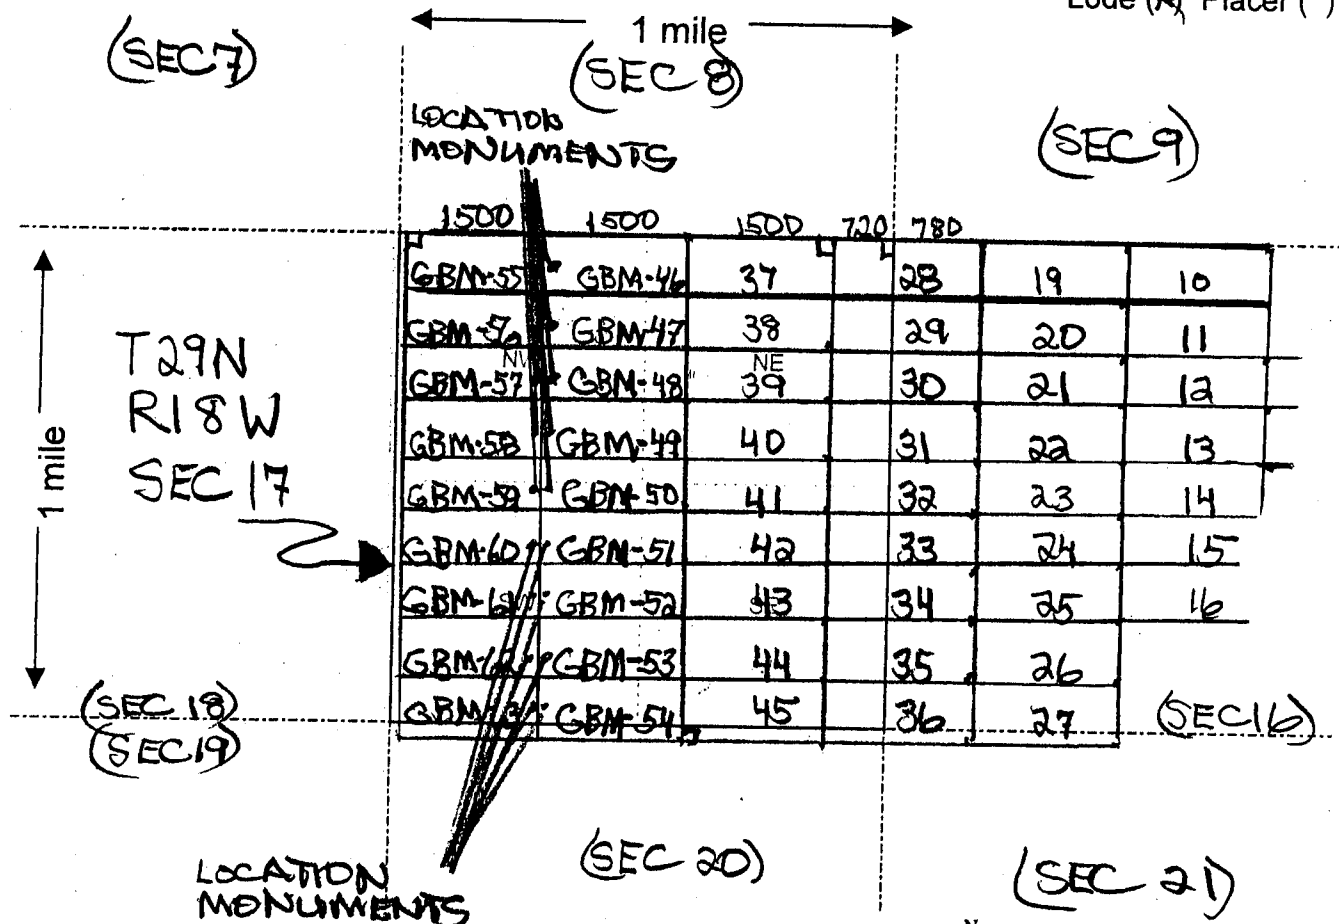 Lode (X) Placer ( )
1 mile
(SEC 7)
(SEC 8)
(SEC 9)
LOCATION
MONUMENTS
1500 1500 1500 720 780
GBM-55 GBM-46 37 28 19 10
GBM-56 GBM-47 38 29 20 11
NE
GBM-57 GBM-48 39 30 21 12
GBM-58 GBM-49 40 31 22 13
GBM-59 GBM-50 41 32 23 14
GBM-60 GBM-51 42 33 24 15
GBM-61 GBM-52 43 34 25 16
GBM-62 GBM-53 44 35 26
GBM- GBM-54 45 36 27
T29N
R18W
SEC 17
1 mile
(SEC 18)
(SEC 19)
(SEC 16)
(SEC 20)
(SEC 21)
LOCATION
MONUMENTS
N